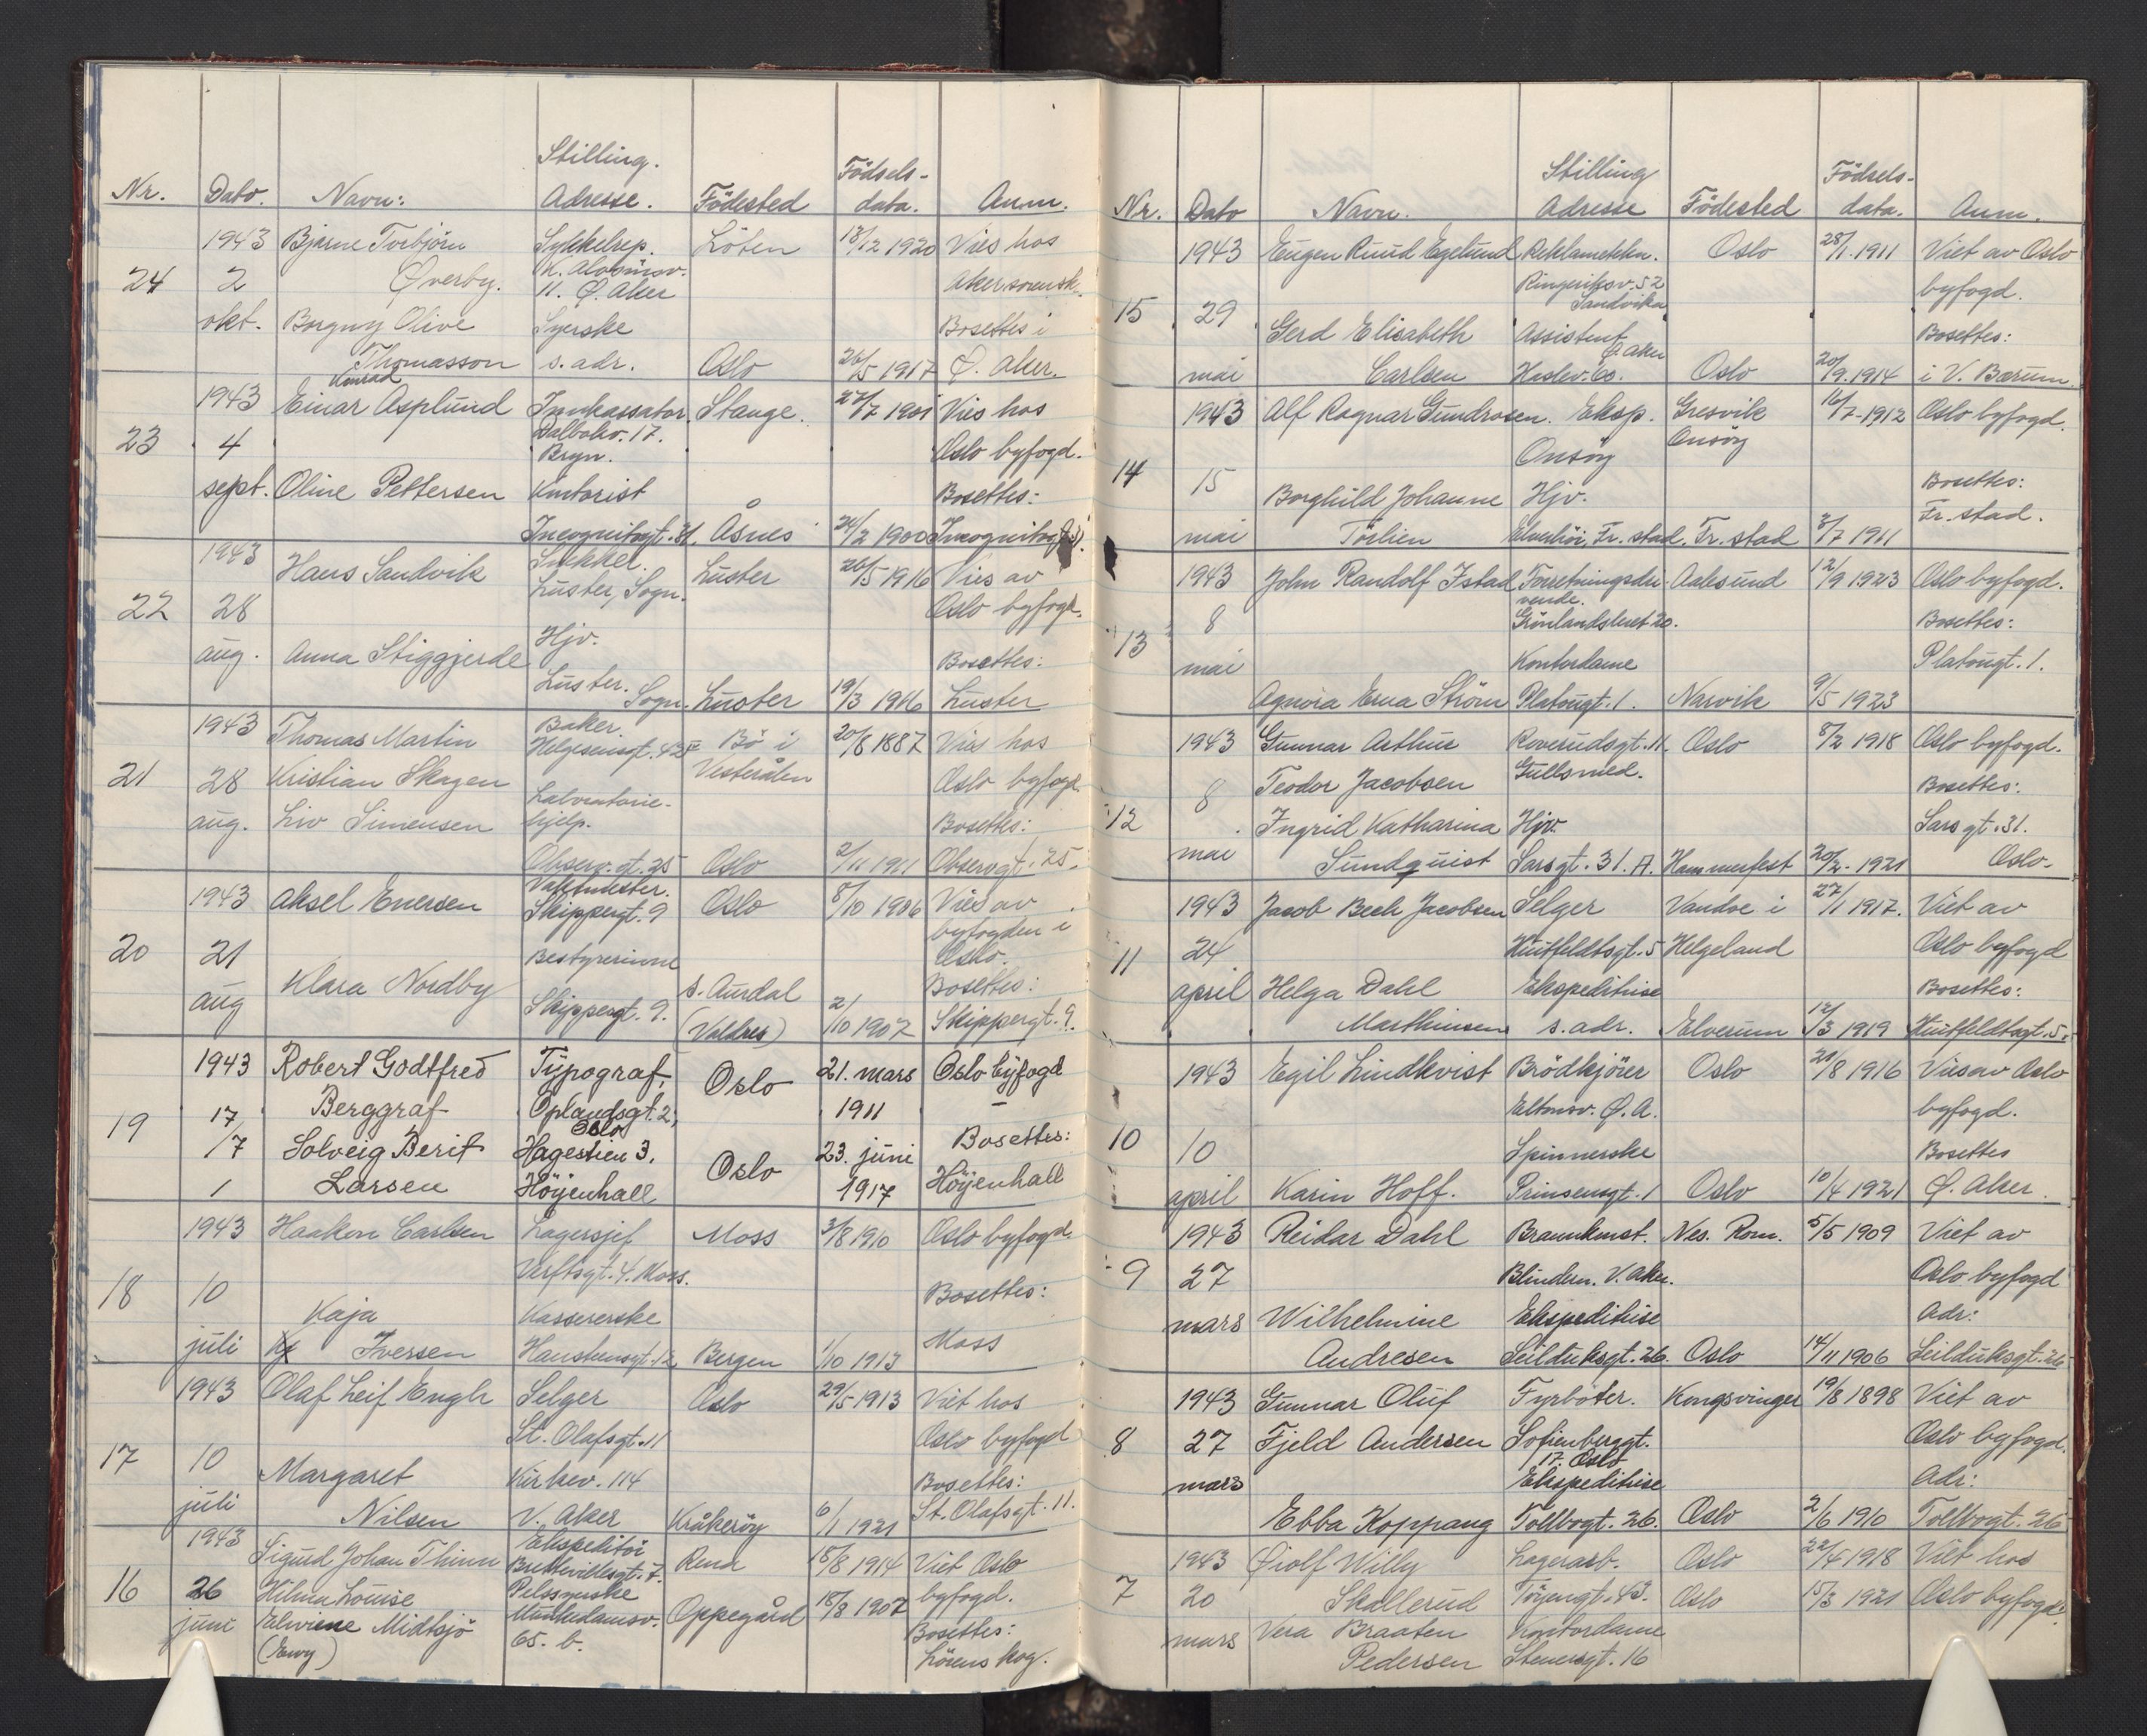 Nr. Dato. Navn: Stilling. Adresse. Födested Födsels- data. Anm.
1943 Bjarne Torbjörn Sykkelrep. Löten 13/12 1920 Vies hos
24 2 Øverby. 11. Ø. Aker Aker sorensk.
okt. Borgny Olive Syerske Bosettes i
Thomasson s. adr. Oslo 26/5 1917 Ø. Aker.
Konrad
1943 Einar Asplund Innkassator. Stange. 27/7 1901 Vies hos
23 4 Dalbakv. 17. Bryn. Oslo byfogd.
sept. Oline Pettersen Kontorist Bosettes:
Incognitogt. 31. Åsnes 24/2 1900 Incognitogt. 31.
1943 Hans Sandvik Snekker. Luster 26/5 1916 Vies av
22 28 Luster, Sogn. Oslo byfogd.
aug. Anna Stiggjerde Hjv. Bosettes:
Luster. Sogn. Luster 19/3 1916 Luster
1943 Thomas Martin Baker. Bö i 20/8 1887 Vies hos
Helgesensgt. 42 Vesterålen
21 28 Kristian Skagen Laboratorie- Oslo byfogd
aug. Liv Simensen hjelp. Bosettes:
Observ. gt. 25 Oslo 2/11 1911 Observgt. 25.
1943 Aksel Enersen Vaktmester. Oslo 8/10 1906 Vies av
Skippergt. 9 byfogden i
20 21 Bestyrerinne Oslo.
aug Klara Nordby Skippergt. 9. S. Aurdal Bosettes:
(Valdres) 2/10 1907 Skippergt. 9.
1943 Robert Godtfred Typograf, Oslo 21. mars Oslo byfogd
Berggraf Oplandsgt. 2, Oslo 1911 —
19 17/7 Solveig Berit Hagestien 3. Oslo 23. juni Bosettes:
Larsen Höyenhall 1917 Höyenhall
1943 Haakon Carlsen Lagersjef Moss 3/8 1910 Oslo byfogd.
Verftsgt. 4. Moss.
18 10 Kaja Kassererske Bosettes:
juli Iversen Haustensgt. 12 Bergen 1/10 1913 Moss
1943 Olaf Leif Engh Selger Oslo 29/5 1913 Viet hos
St. Olafsgt. 11 Oslo byfogd
17 10 Margaret Kirkev. 114 Bosettes:
juli Nilsen V. Aker Kråkeröy 6/1 1921 St. Olafsgt. 11.
1943 Sigurd Johan Thinn Ekspeditör Rena 15/8 1914 Viet Oslo
16 26 Hilma Louise Pelssyerske Oppegård 18/8 1907 byfogd.
juni Elwine Midtsjö 65. b. Bosettes:
(Eny) Lörenskog.
Nr. Dato Navn. Stilling Adresse Födested Födsels- data. Anm.
1943 Eugen Ruud Egelund Reklametekn. Oslo 28/1. 1911 Viet av Oslo
Ringeriksv. 52 Sandvika byfogd.
15 29 Gerd Elisabeth Assistent Bosettes:
mai Carlsen Haslev. 60. Ø. Aker Oslo 20/9. 1914 i V. Bærum.
1943 Alf Ragnar Gundrosen. Eksp. Gresvik 16/7-1912 Oslo byfogd.
Onsöy Onsöy
14 15 Borghild Johanne Hjv. Bosettes:
mai Törlien Elvehöi, Fr. stad. Fr. stad 3/7 1911 Fr. stad.
1943 John Randolf Istad Forretningsdri- Aalesund 12/9 1923 Oslo byfogd.
vende.
13 8 Grönlandsleret 20. Bosettes:
mai Kontordame Platougt. 1.
Agnora Erna Ström Platougt. 1. Narvik 9/5 1923
1943 Gunnar Arthur Roverudsgt. 11 Oslo 8/2 1918 Oslo byfogd.
12 8 Teodor Jacobsen Gullsmed. Bosettes:
mai Ingrid Katharina Hjv. Sarsgt. 31.
Sundquist Sarsgt. 31. A. Hammerfest 20/2-1921 Oslo-
1943 Jacob Bech Jacobsen Selger Vandve i 27/1 1917. Viet av
11 24 Huitfeldtsgt. 5 Helgeland Oslo byfogd
april Helga Dahl Ekspeditrise Bosettes:
Marthinsen s. adr. Elverum 12/3 1919 Huitfeldtsgt. 5.
1943 Egil Lindkvist Brödkjörer Oslo 21/8 1916 Vies av Oslo
Eltonsv. Ø. A. byfogd.
10 10 Spinnerske Bosettes
april Karin Hoff. Prinsensgt. 1 Oslo 10/4 1921 Ø. Aker.
1943 Reidar Dahl Brannkonst. Nes. Rom. 5/5 1909 Viet av
9 27 Blindern. V. Aker. Oslo byfogd
mars Wilhelmine Ekspeditrise Adr:
Andresen Seilduksgt. 26. Oslo 14/11 1906 Seilduksgt. 26
1943 Gunnar Oluf Fyrböter. Kongsvinger 19/8 1898 Viet av
8 27 Fjeld Andersen Sofienberggt. 17. Oslo Oslo byfogd.
mars Ekspeditrise Adr:
Ebba Koppang Tollbogt. 26. Oslo 2/6 1910 Tollbogt. 26
1943 Øiolf Willy Lagerarb. Oslo 22/4 1918 Viet hos
7 20 Skollerud Töyengt. 43. Oslo 15/3 1921 Oslo byfogd.
mars Vera Braaten Kontordame
Pedersen Stenersgt. 16